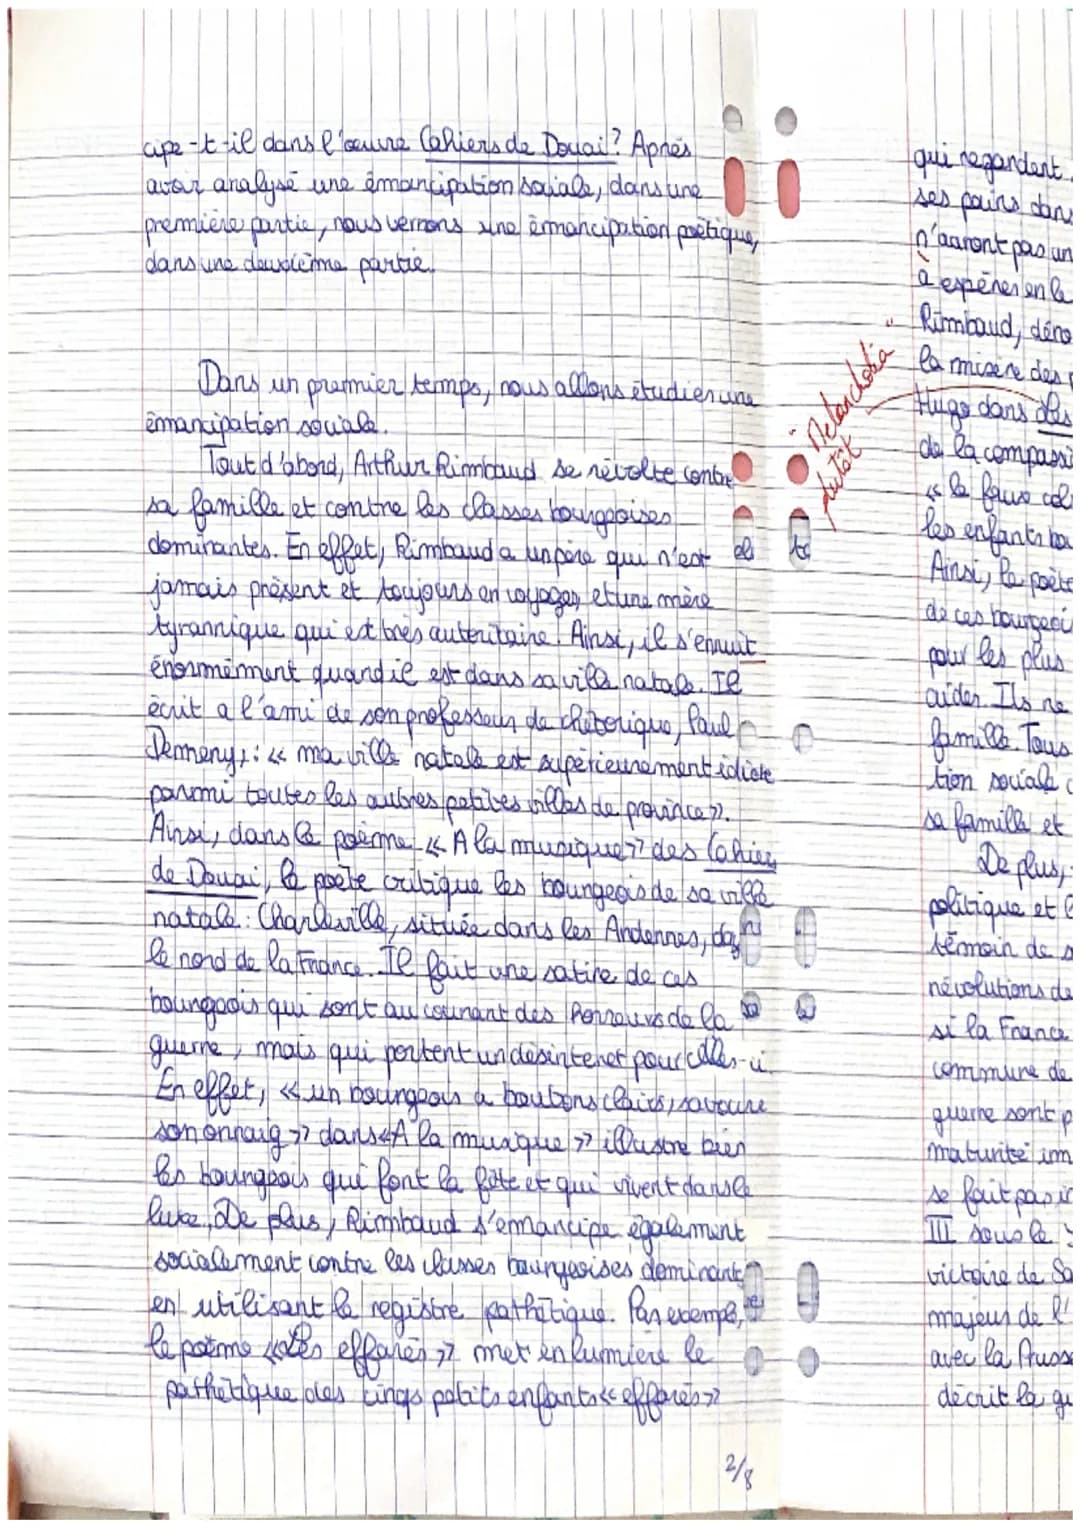 cipe-t-il dans l'œuvre Cahiers de Douai? Après
avoir analysé une émancipation sociale, dans une
première partie, nous verrons une émancipation poétique,
dans une deuxième partie.
Dans un premier temps, nous allons étudier une
émancipation sociale.
Tout d'abord, Arthur Rimbaud se révolte contre
sa famille et contre les classes bourgeoises
dominantes. En effet, Rimbaud a un père qui n'est
jamais présent et toujours en voyages, et une mère
tyrannique qui est très autoritaire. Ainsi, il s'ennuit
énormément quand il est dans sa ville natale. Il
écrit a l'ami de son professeur de rhétorique, Paul
Demeny,: « ma ville natale est supérieurement idiote
parmi toutes les autres petites villes de province ».
Ainsi, dans le poème « A la musique » des Cahiers
de Douai, le poète critique les bourgeois de sa ville
natale: Charleville, située dans les Ardennes, dans
le nord de la France. Il fait une satire de ces
bourgeois qui sont au courant des horreurs de la
guerre, mais qui portent un désinteret pour celles-ci.
En effet, « un bourgeois a boutons clairs, savoure
son onnaig » dans « A la musique » illustre bien
les bourgeois qui font la fête et qui vivent dans le
luxe. De plus, Rimbaud s'émancipe également
socialement contre les classes bourgeoises dominantes
en utilisant le registre pathétique. Par exemple,
le poème « Les effarés » met en lumière le
pathétique des cinqs petits enfants « effarés »
2/8
"Melancholia"
plutôt
qui regardent
ses pains dans
n'auront pas un
à espérer en le
Rimbaud, déno
la misère des
Hugo dans Les
de la compassi
« la fauve col
les enfants ba
Ainsi, le poète
de ces bourgeoi
pour les plus
aider. Ils ne
famille. Tous
tion sociale c
sa famille et
De plus,
politique et l
témoin de s
révolutions de
si la France
commune de
guerre sont p
maturité im
se fait pas i
III sous le
victoire de Sa
majeur de l'
avec la Prusse
décrit la gu